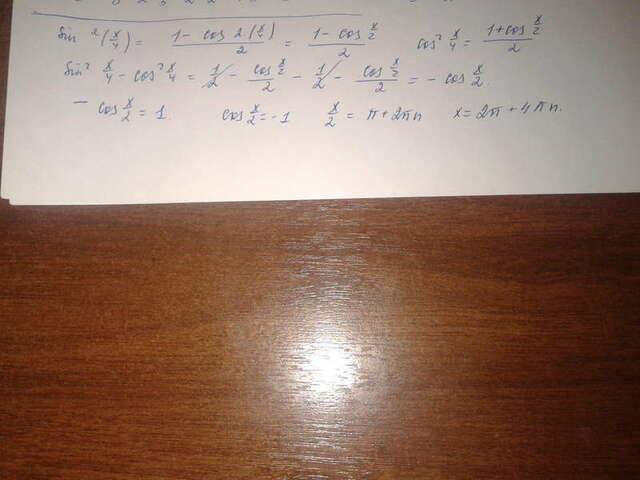 sin²(x/4) = (1 - cos 2·(x/4))/2 = (1 - cos x/2)/2 cos² x/4 = (1 + cos x/2)/2
sin² x/4 - cos² x/4 = 1/2 - (cos x/2)/2 - 1/2 - (cos x/2)/2 = - cos x/2
- cos x/2 = 1. cos x/2 = -1 x/2 = π + 2πn x = 2π + 4πn.